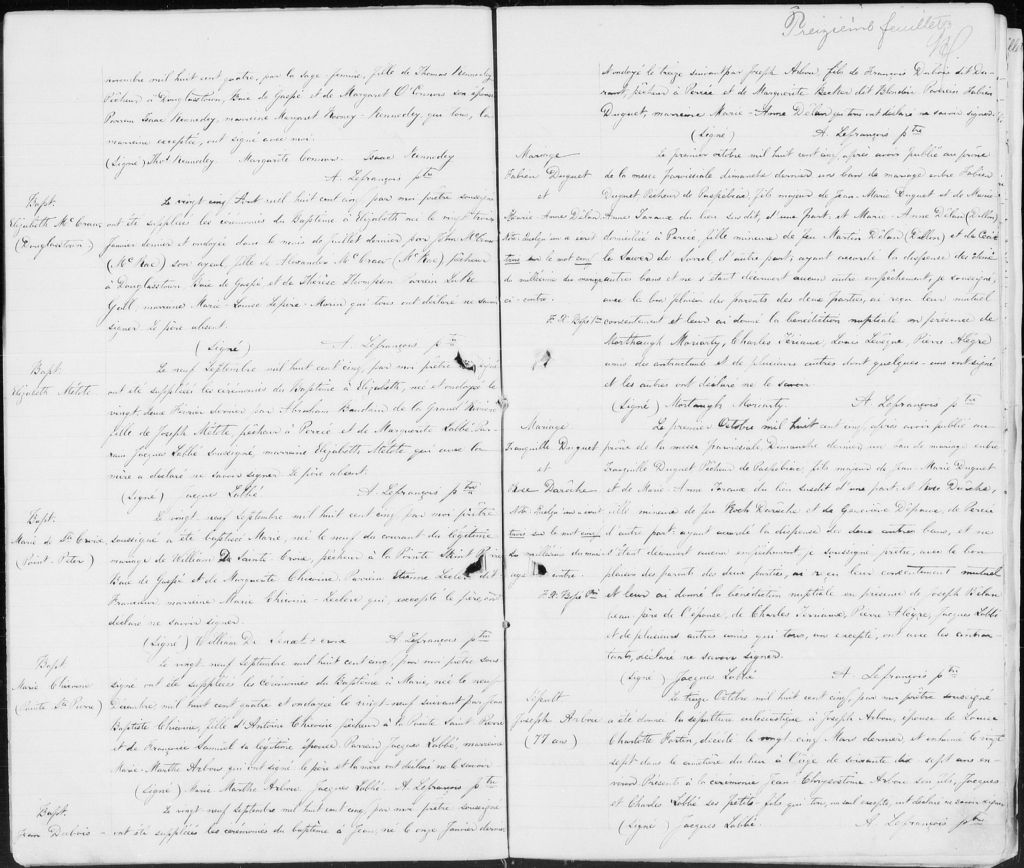 novembre mil huit cent quatre, par la sage-femme, fille de Thomas Kennedey
Pêcheur à Douglastown, Baie de Gaspé et de Margaret O'Connors son épouse
Parrain Isaac Kennedey, marraine Margaret Kennedey, qui tous, la
marraine exceptée, ont signé avec moi.
(Signé) Thos Kennedey. Margarite Connors. Isaac Kennedey
A. Lefrançois ptre
Bapt.
Elizabeth McCraw
(Douglasstown)
Le vingt cinq Aout mil huit cent cinq, par moi prêtre soussigné
ont été suppléées les cérémonies du Baptême à Elizabeth née le vingt
janvier dernier et ondoyée dans le mois de juillet dernier par John McCraw
(McRae) son ayeul fille de Alexander McCraw (McRae) pêcheur
à Douglasstown Baie de Gaspé et de Thérèse Thompson Parrain Luke
marraine Marie Louise qui tous ont déclaré ne savoir
signer le père absent.
(Signé) A. Lefrançois ptre
Bapt.
Elizabeth Métote
Le neuf Septembre mil huit cent cinq, par moi prêtre
ont été suppléées les cérémonies du Baptême à Elizabeth, née et ondoyée le
vingt deux Février dernier par Abraham Baudain de la Grand Rivière
fille de Joseph Métote, pêcheur à Percée et de Marguerite Labbé Par-
rain Jacques Labbé soussigné, marraine Elizabeth Métote qui avec la
mère a déclaré ne savoir signer. le père absent.
(Signé) Labbé A. Lefrançois ptre
Bapt.
Marie de Ste Croix
(Point-Peter)
Le vingt neuf Septembre mil huit cent cinq, par moi prêtre
soussigné a été baptisée Marie, née le neuf du courant du légitime
mariage de William De Sainte Croix, pêcheur à la Pointe Saint
Baie de Gaspé et de Marguerite Chicoine. Parrain Etienne Leclerc dit
Francœur marraine Marie Chicoine-Leclerc qui, excepté le père, ont
déclaré ne savoir signer.
(Signé) William De A. Lefrançois ptre
Bapt
Marie Chicoine
(Pointe St Pierre)
Le vingt neuf Septembre mil huit cent cinq, par moi prêtre sous
signé ont été suppléées les cérémonies du Baptême à Marie, née le neuf
Décembre mil huit cent quatre et ondoyée le vingt neuf suivant par Jean
Baptiste Chicoine, fille d'Antoine Chicoine pêcheur à la Pointe Saint Pierre
et de Françoise Samuel sa légitime épouse. Parrain Jacques Labbé, marraine
Marie-Marthe Arbour, qui ont signé le père et la mère ont déclaré ne le savoir
(Signé) Marie Marthe Arbour Jacques Labbé. A. Lefrançois ptre
Bapt.
Jean Dubois
Le vingt neuf Septembre mil huit cent cinq, par moi prêtre soussigné
ont été suppléées les cérémonies du baptême à Jean, né le onze Janvier dernier
Treizième feuillet
et ondoyé le treize suivant par Joseph Arbour fils de François Dubois dit
pêcheur à Percée et de Marguerite Becker dit Blondin. Parrain Fabien
Duguet, marraine Marie-Anne Délan qui tous ont déclaré ne savoir signer.
(Signé) A. Lefrançois ptre
Mariage
Fabien Duguet
et
Marie Anne Délan
Le premier octobre mil huit cent cinq, après avoir publié au prône
de la messe paroissiale dimanche dernier un ban de mariage entre Fabien
Duguet Pêcheur de Paspébiac, fils majeur de Jean-Marie Duguet et de Marie
Anne Taraux du lieu susdit, d'une part, et Marie-Anne Délan (Dillon)
domiciliée à Percée, fille mineure de feu Martin Délan (Dillon) et de
de Sorel d'autre part; ayant accordé la dispense des deux
autres bans et ne s'étant découvert aucun autre empêchement, je soussigné,
avec le bon plaisir des parents des deux parties, ai reçu leur mutuel
consentement et leur ai donné la bénédiction nuptiale en présence de
Morthaugh Moriarty, Charles Tériaux, Louis Levesque, Pierre Alègre
amis du contractant et de plusieurs autres dont quelques-uns ont signé
et les autres ont déclaré ne le savoir
(Signé) Mortaugh Moriarty. A. Lefrançois ptre
Mariage
Tranquille Duguet
et
Rose Daroiche
Le premier Octobre mil huit cent cinq, après avoir publié au
prône de la messe Paroissiale Dimanche dernier, un ban de mariage entre
Tranquille Duguet Pêcheur de Paspébiac, fils majeur de Jean-Marie Duguet
et de Marie-Anne Taraux du lieu susdit d'une part, et Rose
fille mineure de feu Roch et de Geneviève Dépeau, de Percée
d'autre part; ayant accordé la dispense de deux autres bans, et ne
s'étant découvert aucun empêchement je soussigné prêtre, avec le bon
plaisir des parents des deux parties, ai reçu leur consentement mutuel
et leur ai donné la bénédiction nuptiale en présence de Joseph
beau-père de l'épouse, de Charles Teriaux, Pierre Alègre, Jacques Labbé
et de plusieurs autres amis qui tous, un excepté, ont avec les contrac-
tants, déclaré ne savoir signer.
(Signé) Jacques Labbé A. Lefrançois ptre
Sépult
Joseph Arbour
(77 ans)
Le treize Octobre mil huit cent cinq, par moi prêtre soussigné
a été donnée la sépulture ecclésiastique à Joseph Arbour, époux de Louise
Charlotte Fortin, décédé le vingt cinq Mars dernier, et inhumé le vingt
sept dans le cimetière du lieu à l'age de soixante dix-sept ans en-
viron. Présents à la cérémonie Jean Chrysostôme Arbour son fils, Jacques
et Charles Labbé ses petits-fils qui tous, un seul excepté, ont déclaré ne savoir signer
(Signé) Jacques Labbé A. Lefrançois ptre